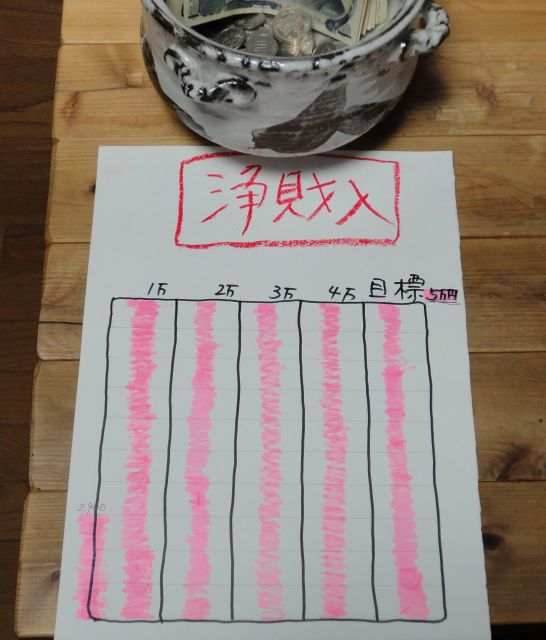 浄財入
1万 2万 3万 4万 目標 5万円
2,900